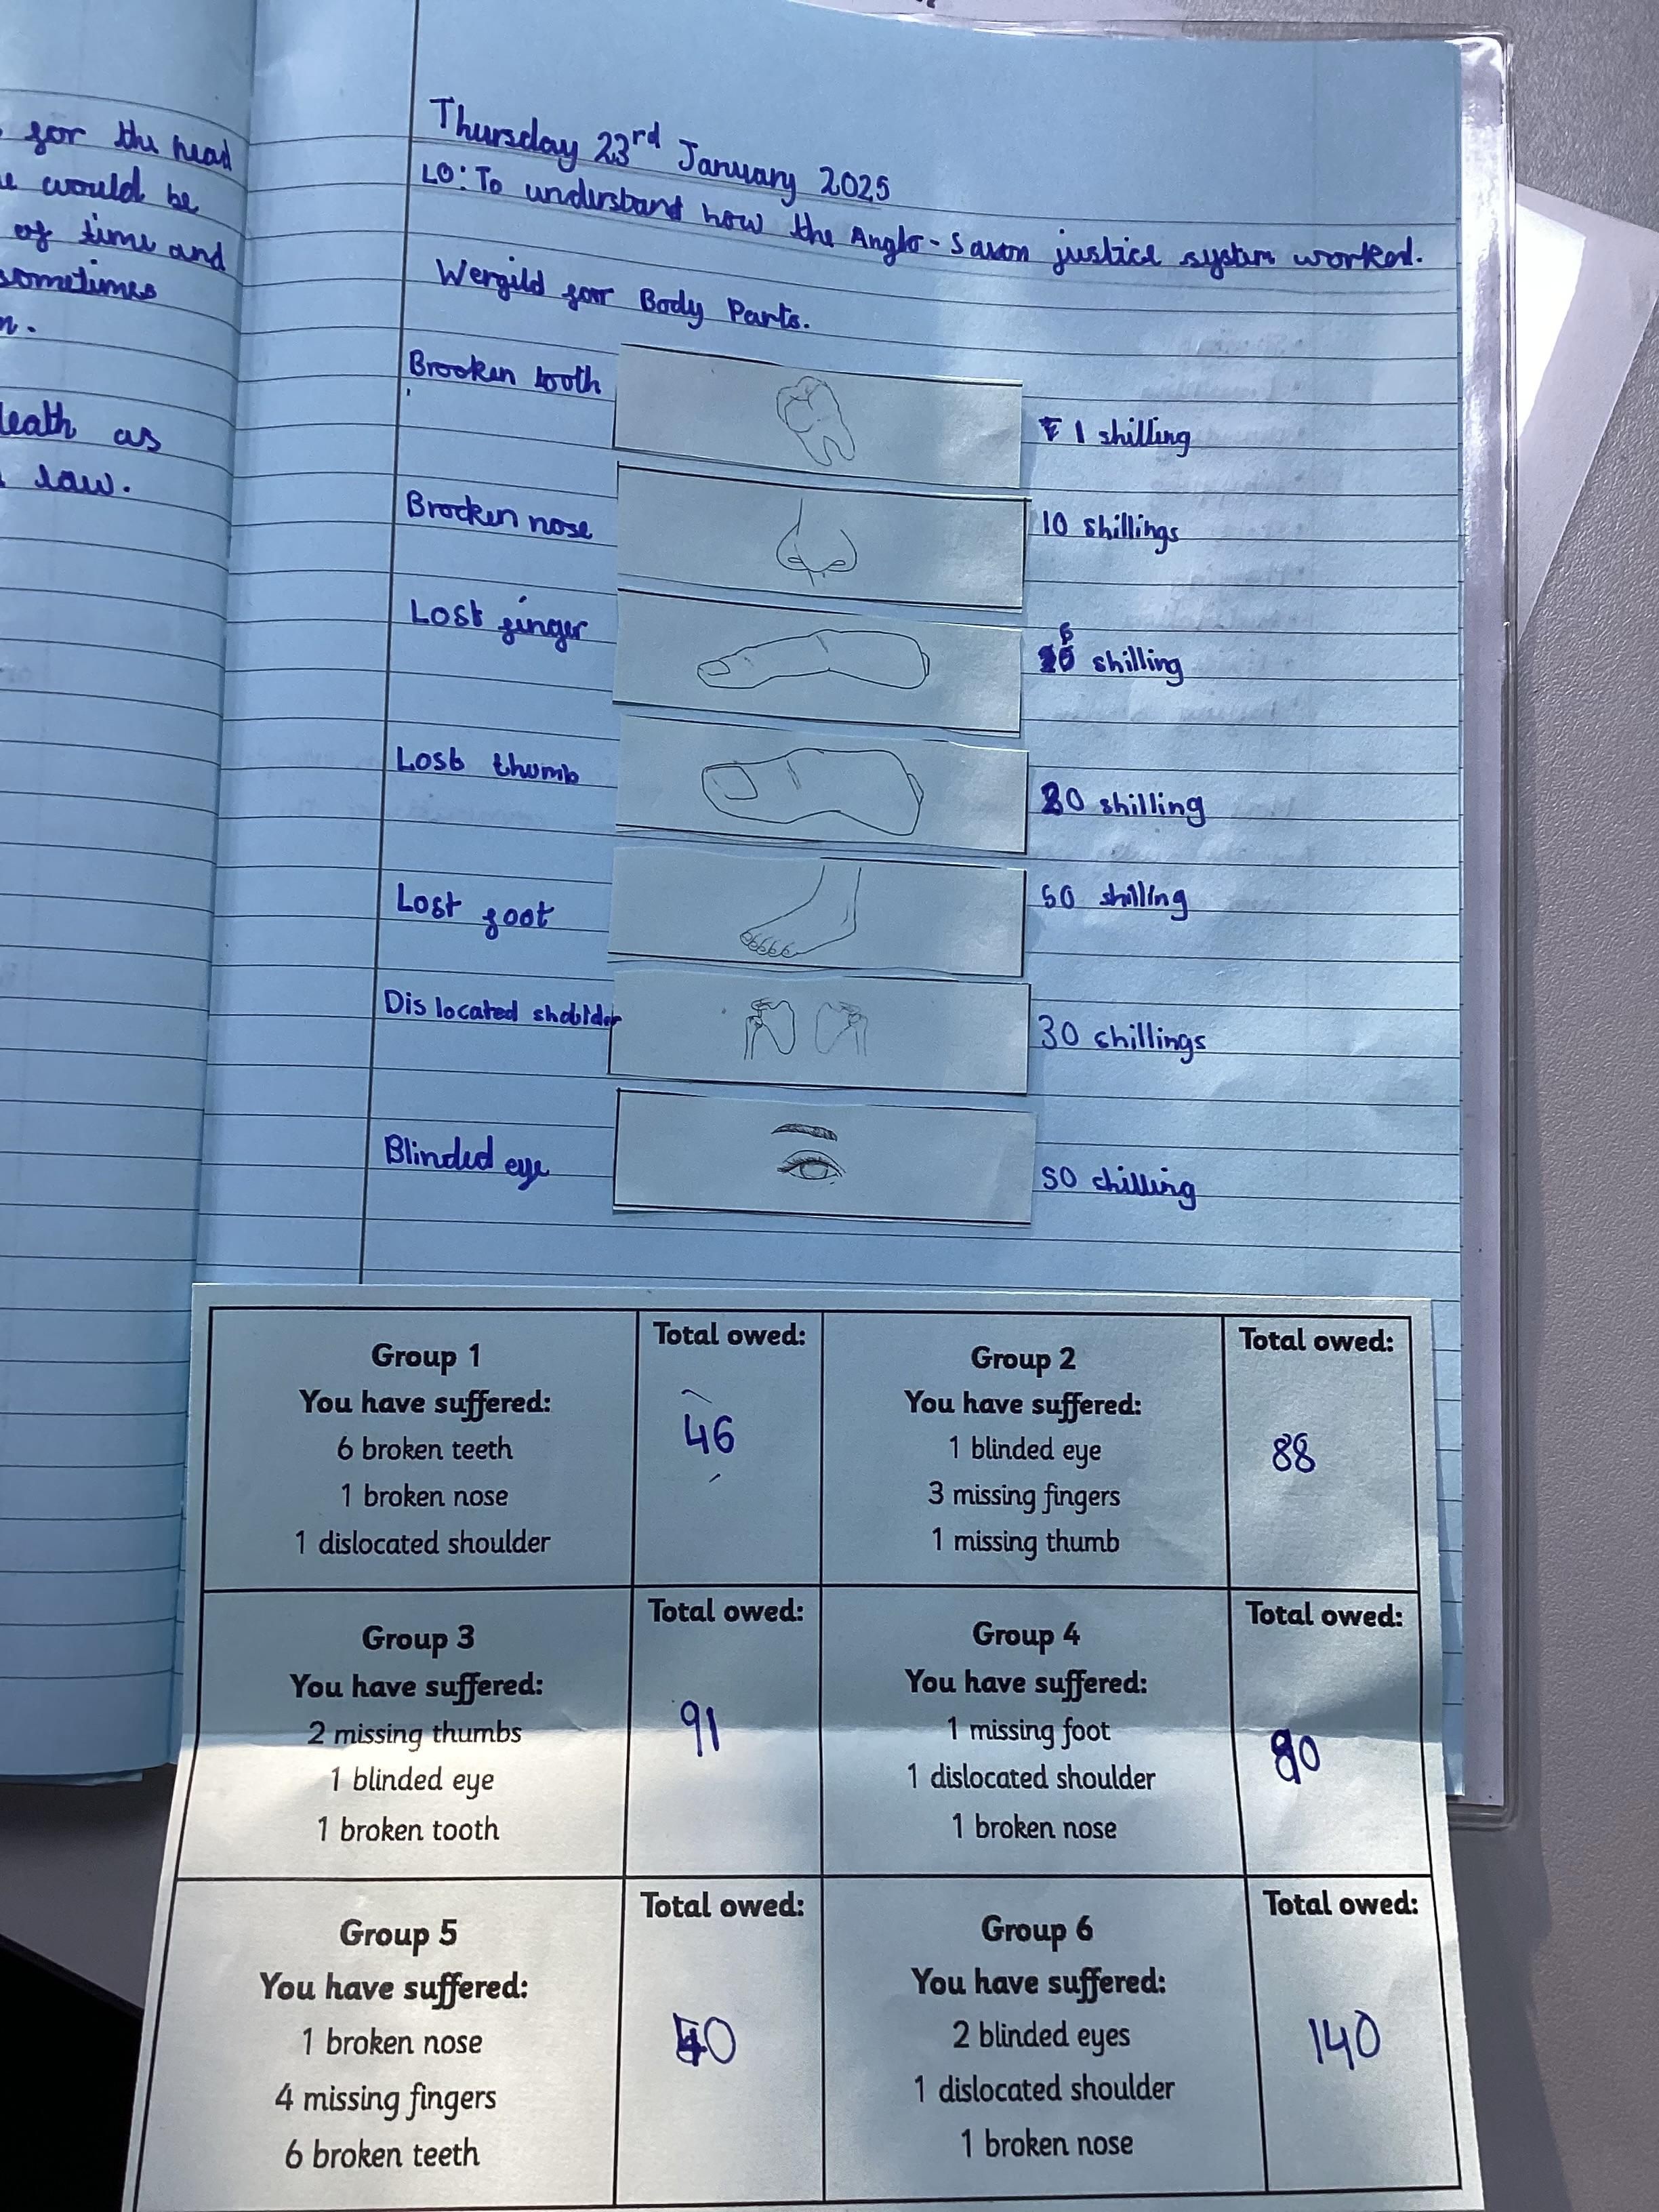 for the head
would be
of time and
sometimes
death as
law.
Thursday 23rd January 2025
LO: To understand how the Anglo-Saxon justice system worked.
Wergild for Body Parts.
Brocken tooth
1 shilling
Brocken nose
10 shillings
Lost finger
6 shilling
Lost thumb
20 shilling
Lost foot
50 shilling
Dis located shoulder
30 shillings
Blinded eye
50 shilling
Group 1
You have suffered:
6 broken teeth
1 broken nose
1 dislocated shoulder
Total owed:
46
Group 2
You have suffered:
1 blinded eye
3 missing fingers
1 missing thumb
Total owed:
88
Group 3
You have suffered:
2 missing thumbs
1 blinded eye
1 broken tooth
Total owed:
91
Group 4
You have suffered:
1 missing foot
1 dislocated shoulder
1 broken nose
Total owed:
90
Group 5
You have suffered:
1 broken nose
4 missing fingers
6 broken teeth
Total owed:
40
Group 6
You have suffered:
2 blinded eyes
1 dislocated shoulder
1 broken nose
Total owed:
140